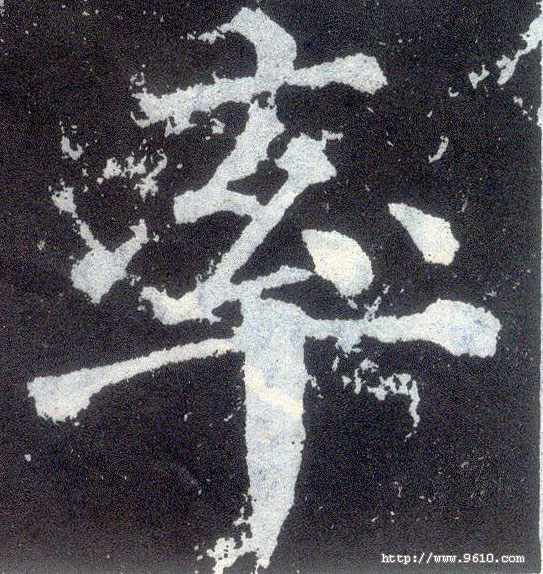 率
http://www.9610.com